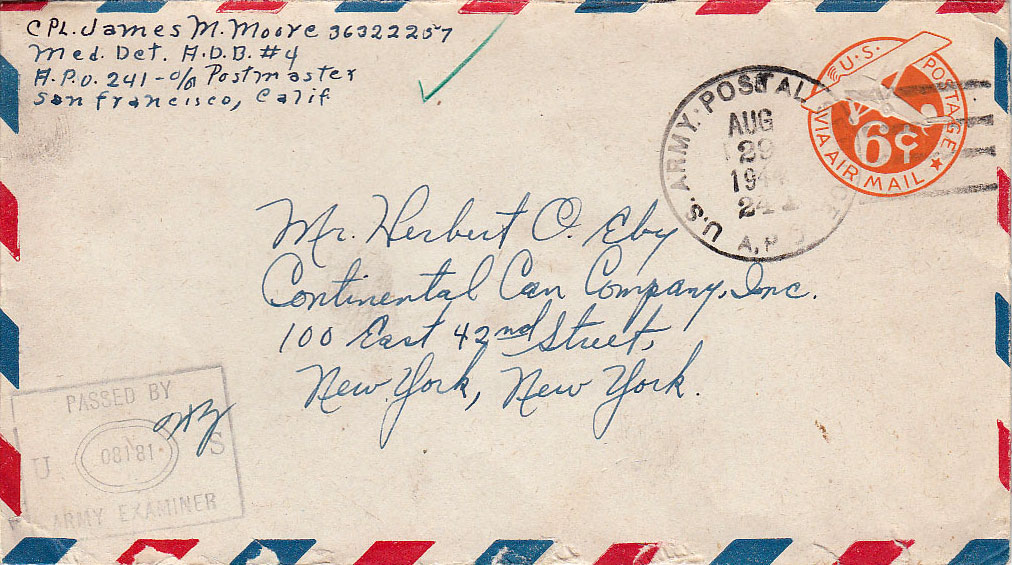 CPL. James M. Moore 36322257
Med. Det. A.D.B. #4
A.P.O. 241 - c/o Postmaster
San Francisco, Calif
U.S. ARMY. POSTAL
A.P.
AUG
29
U.S. POSTAGE
6¢
VIA AIR MAIL
Mr. Herbert O. Eby
Continental Can Company, Inc.
100 East 42nd Street,
New York, New York.
PASSED BY
U 08181 S
ARMY EXAMINER